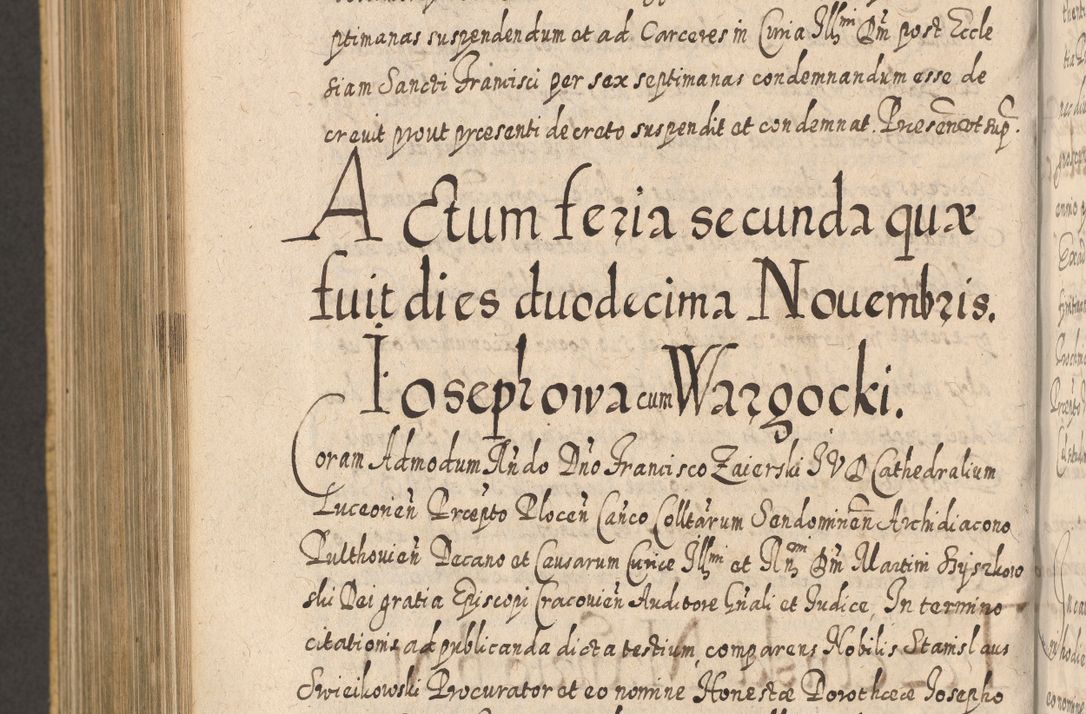 ptimanas suspendendum et ad Carceres in Curia Illmi Dni post Eccle
siam Sancti Francisci per sex septimanas condemnandum esse de
creuit prout præsenti decreto suspendit et condemnat. Præsen: vt sup.
Actum feria secunda quæ
fuit dies duodecima Nouembris.
Iosephowa cum Wargocki.
Coram Admodum Rndo Dno Francisco Zaierski I V D Cathedralium
Luceorien Præpto Plocen Canco Colltarum Sendominen Archidiacono
Pulthouien Decano et Causarum Curiæ Illmi et Rmi Dni Martini Szyszkow
ski Dei gratia Episcopi Cracouien Auditore Gnali et Iudice, In termino
citationis ad publicanda dicta testium, comparens Nobilis Stanislaus
Swieikowski Procurator et eo nomine Honestæ Dorotheæ Iosepho